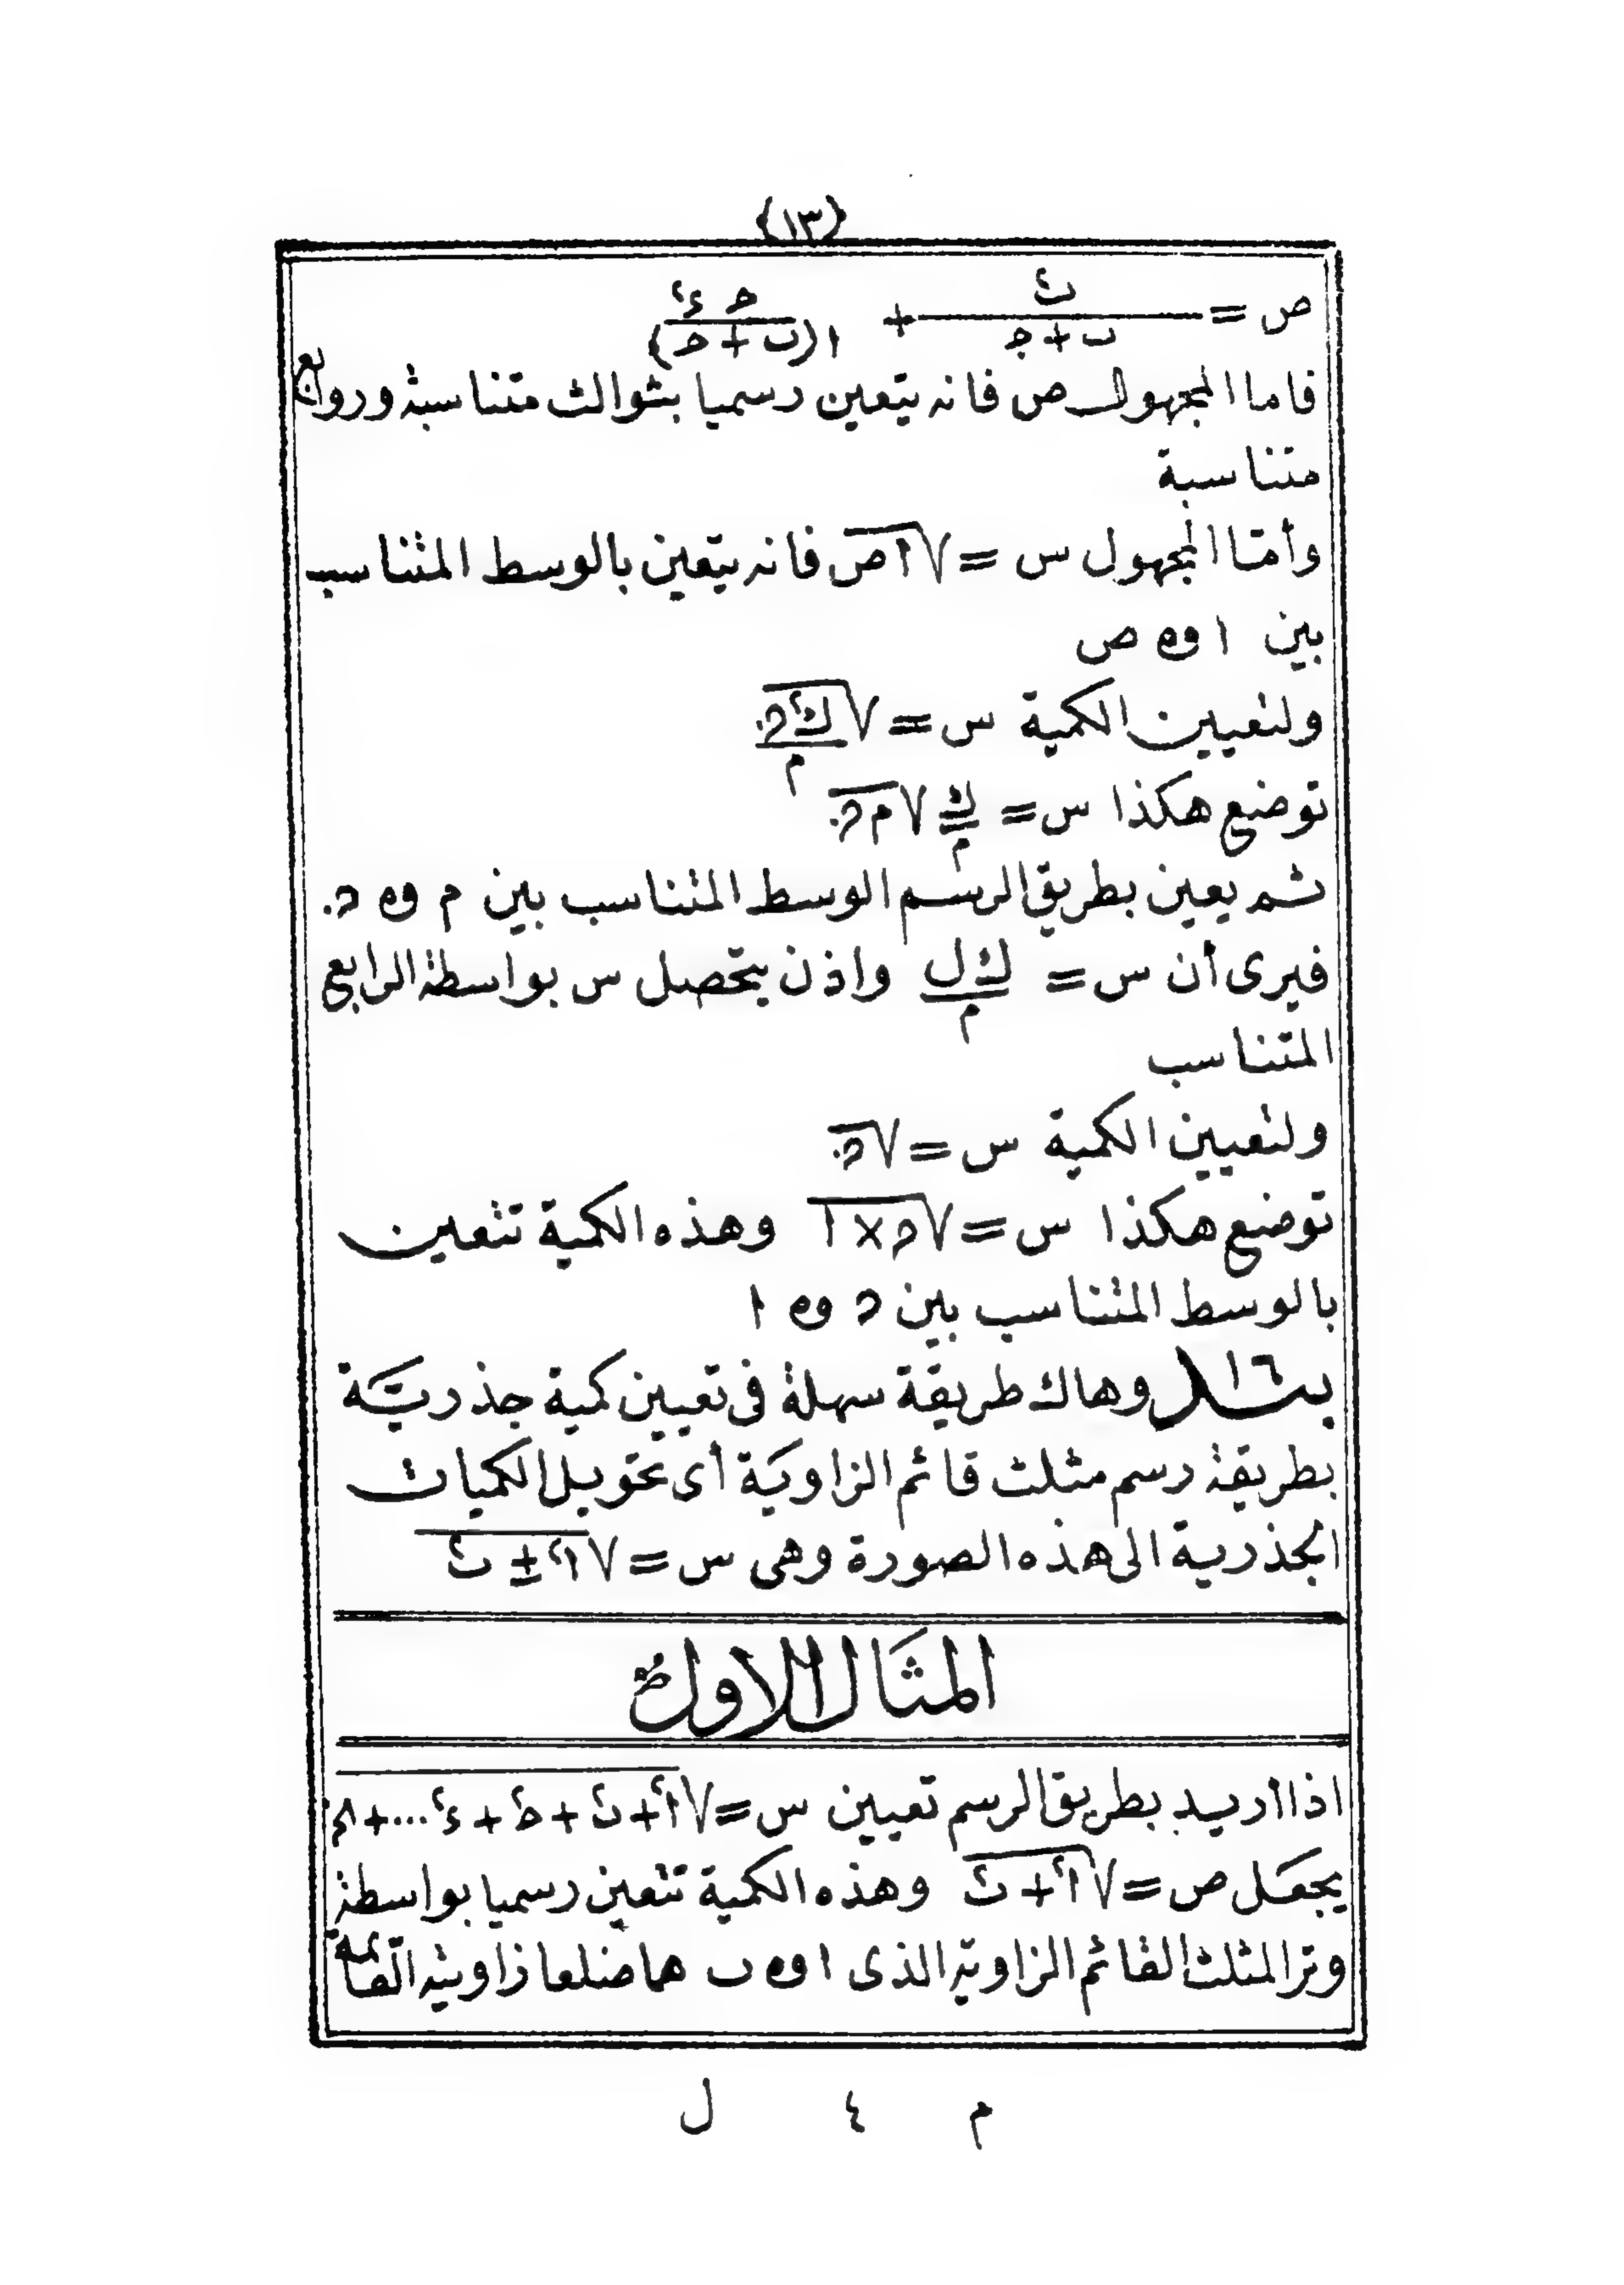 {١٣}
ص = ب٢/(ب + ج) + ح ء٢/ا(ب + ح)
فاما المجهول ص فانه يتعين رسميا بثوالث متناسبة وروابع
متناسبة
وأمّا المجهول س = √ا ص فانه يتعين بالوسط المتناسب
بين ا و ص
ولتعيين الكمية س = √ك٢ھ/م
توضع هكذا س = ك/م √م ھ
ثم يعين بطريق الرسم الوسط المتناسب بين م و ھ
فيرى أن س = ك ل/م واذن يتحصل س بواسطة الرابع
المتناسب
ولتعيين الكمية س = √ھ
توضع هكذا س = √ھ × ١ وهذه الكمية تتعين
بالوسط المتناسب بين ھ و ١
بند ١٦ وهاك طريقة سهلة فى تعيين كمية جذريّة
بطريقة رسم مثلث قائم الزاوية أى تحويل الكميات
الجذرية الى هذه الصورة وهى س = √ا٢ ± ب٢
المثال الاول
اذا اريد بطريق الرسم تعيين س = √ا٢ + ب٢ + ح٢ + ء٢ ... +
يجعل ص = √ا٢ + ب٢ وهذه الكمية تتعين رسميا بواسطة
وتر المثلث القائم الزاوية الذى ا و ب هما ضلعا زاويته القائمة
م ٤ ل